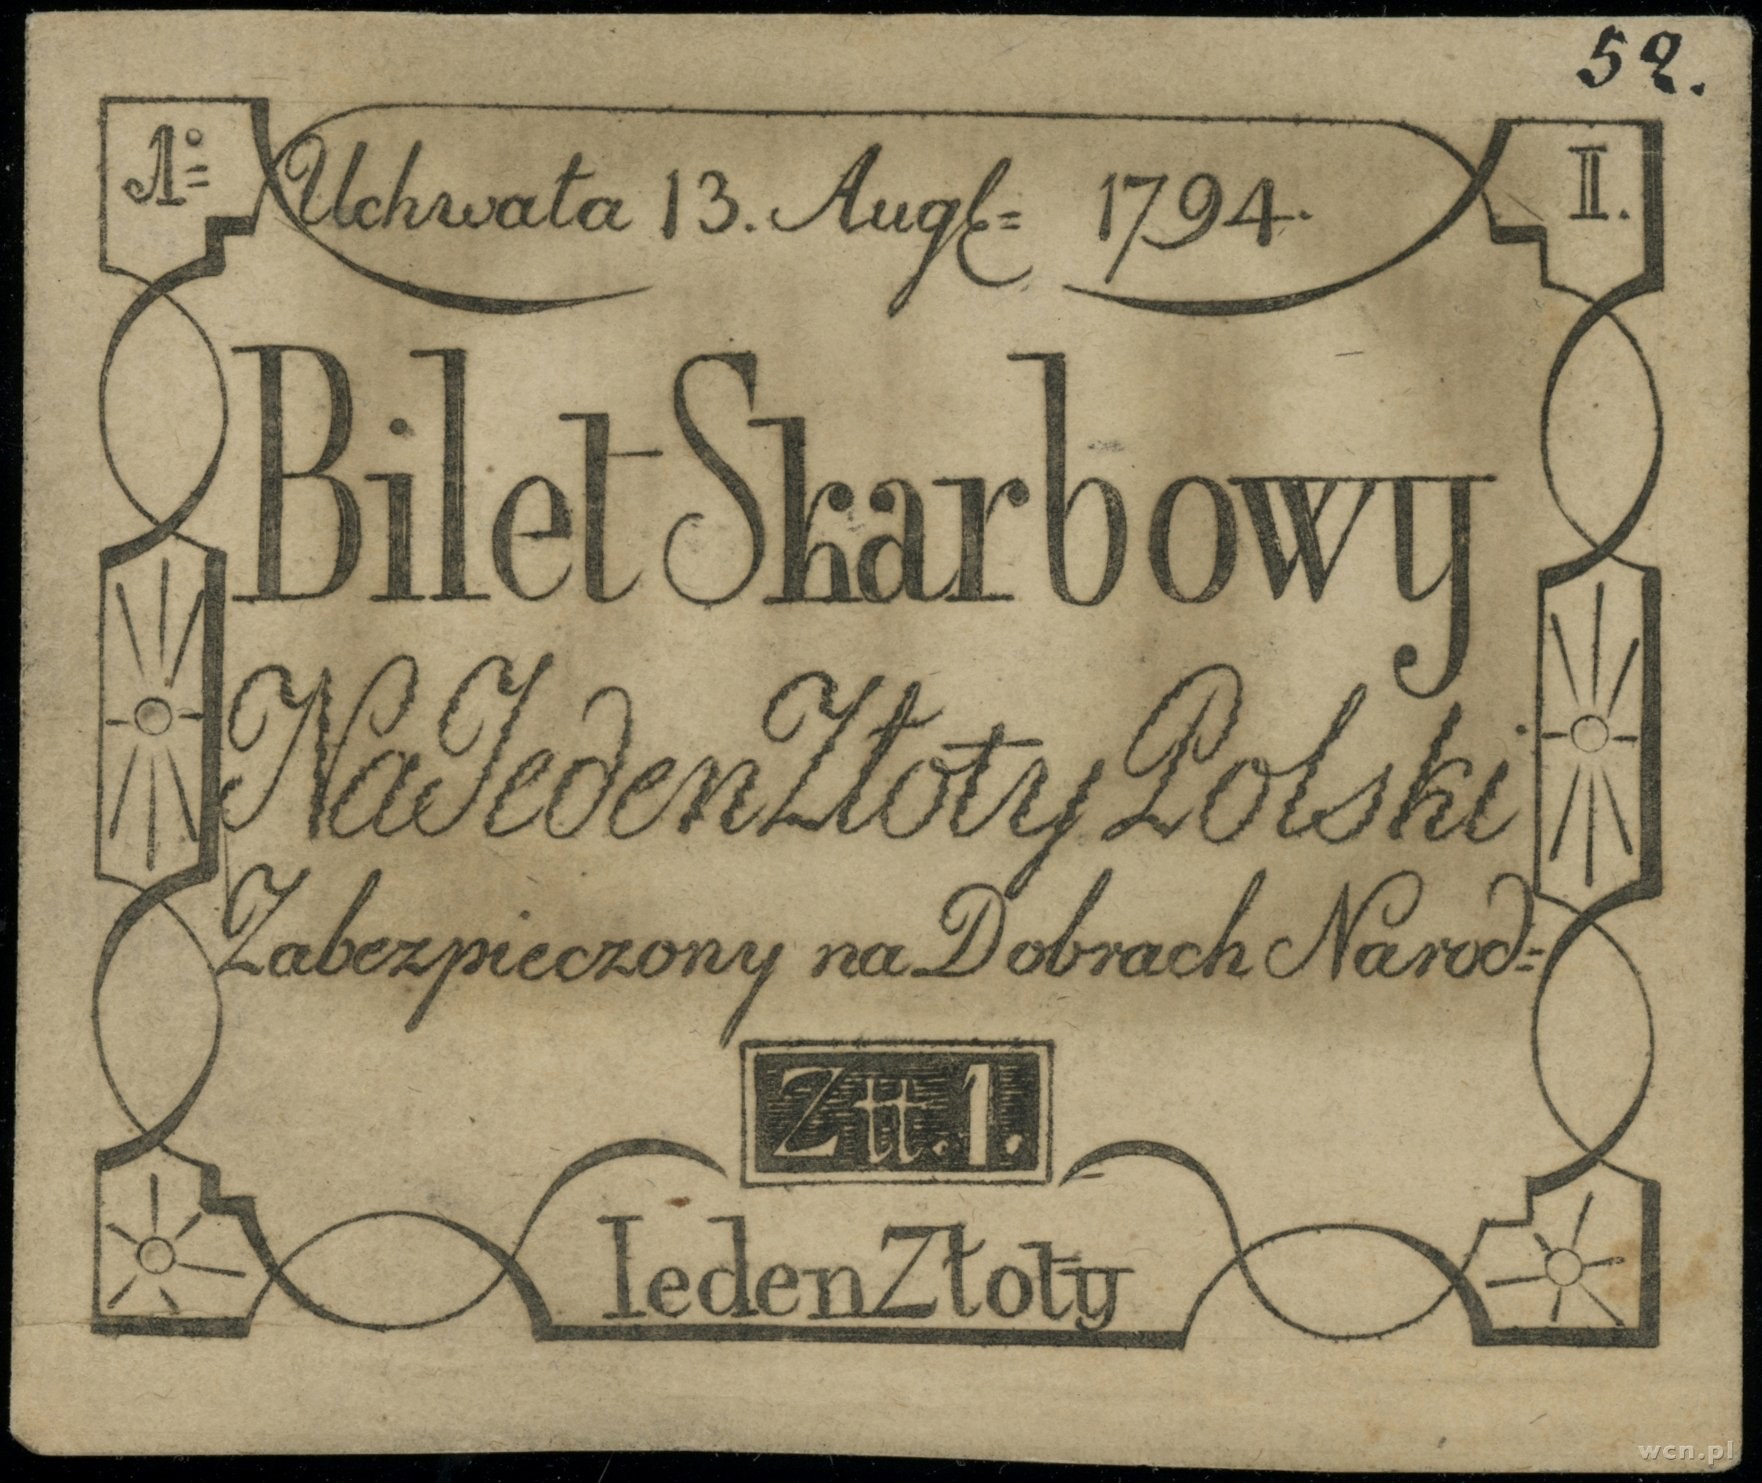 52.
1º= Uchwała 13. Augt= 1794. II.
Bilet Skarbowy
Na Jeden Złoty Polski
Zabezpieczony na Dobrach Narod=
Złł. 1.
Ieden Złoty
wcn.pl